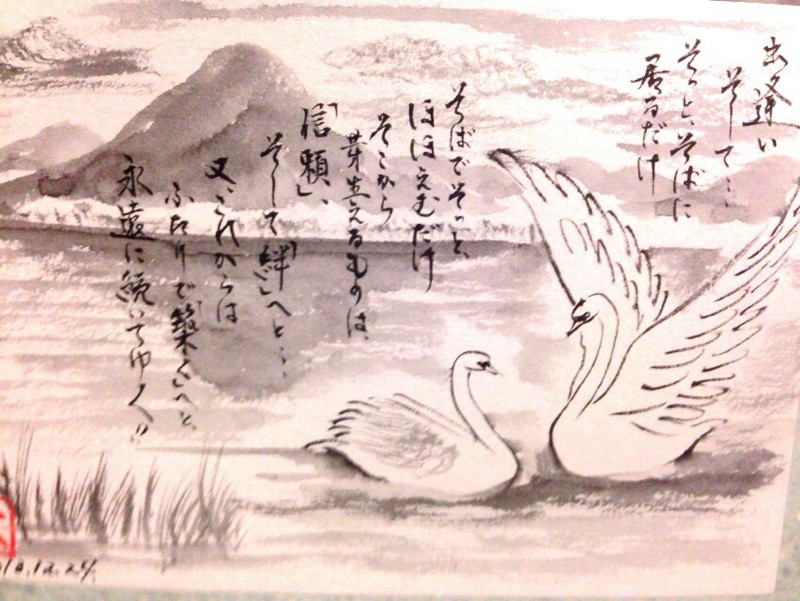 出逢い
そして…
そっと、そばに
居るだけ
そばでそっと、
ほほえむだけ
そこから
芽生えるものは、
「信頼」、
そして「絆」へと…
又、これからは
ふたりで「築く」へと、
永遠に続いてゆく!!
12.24